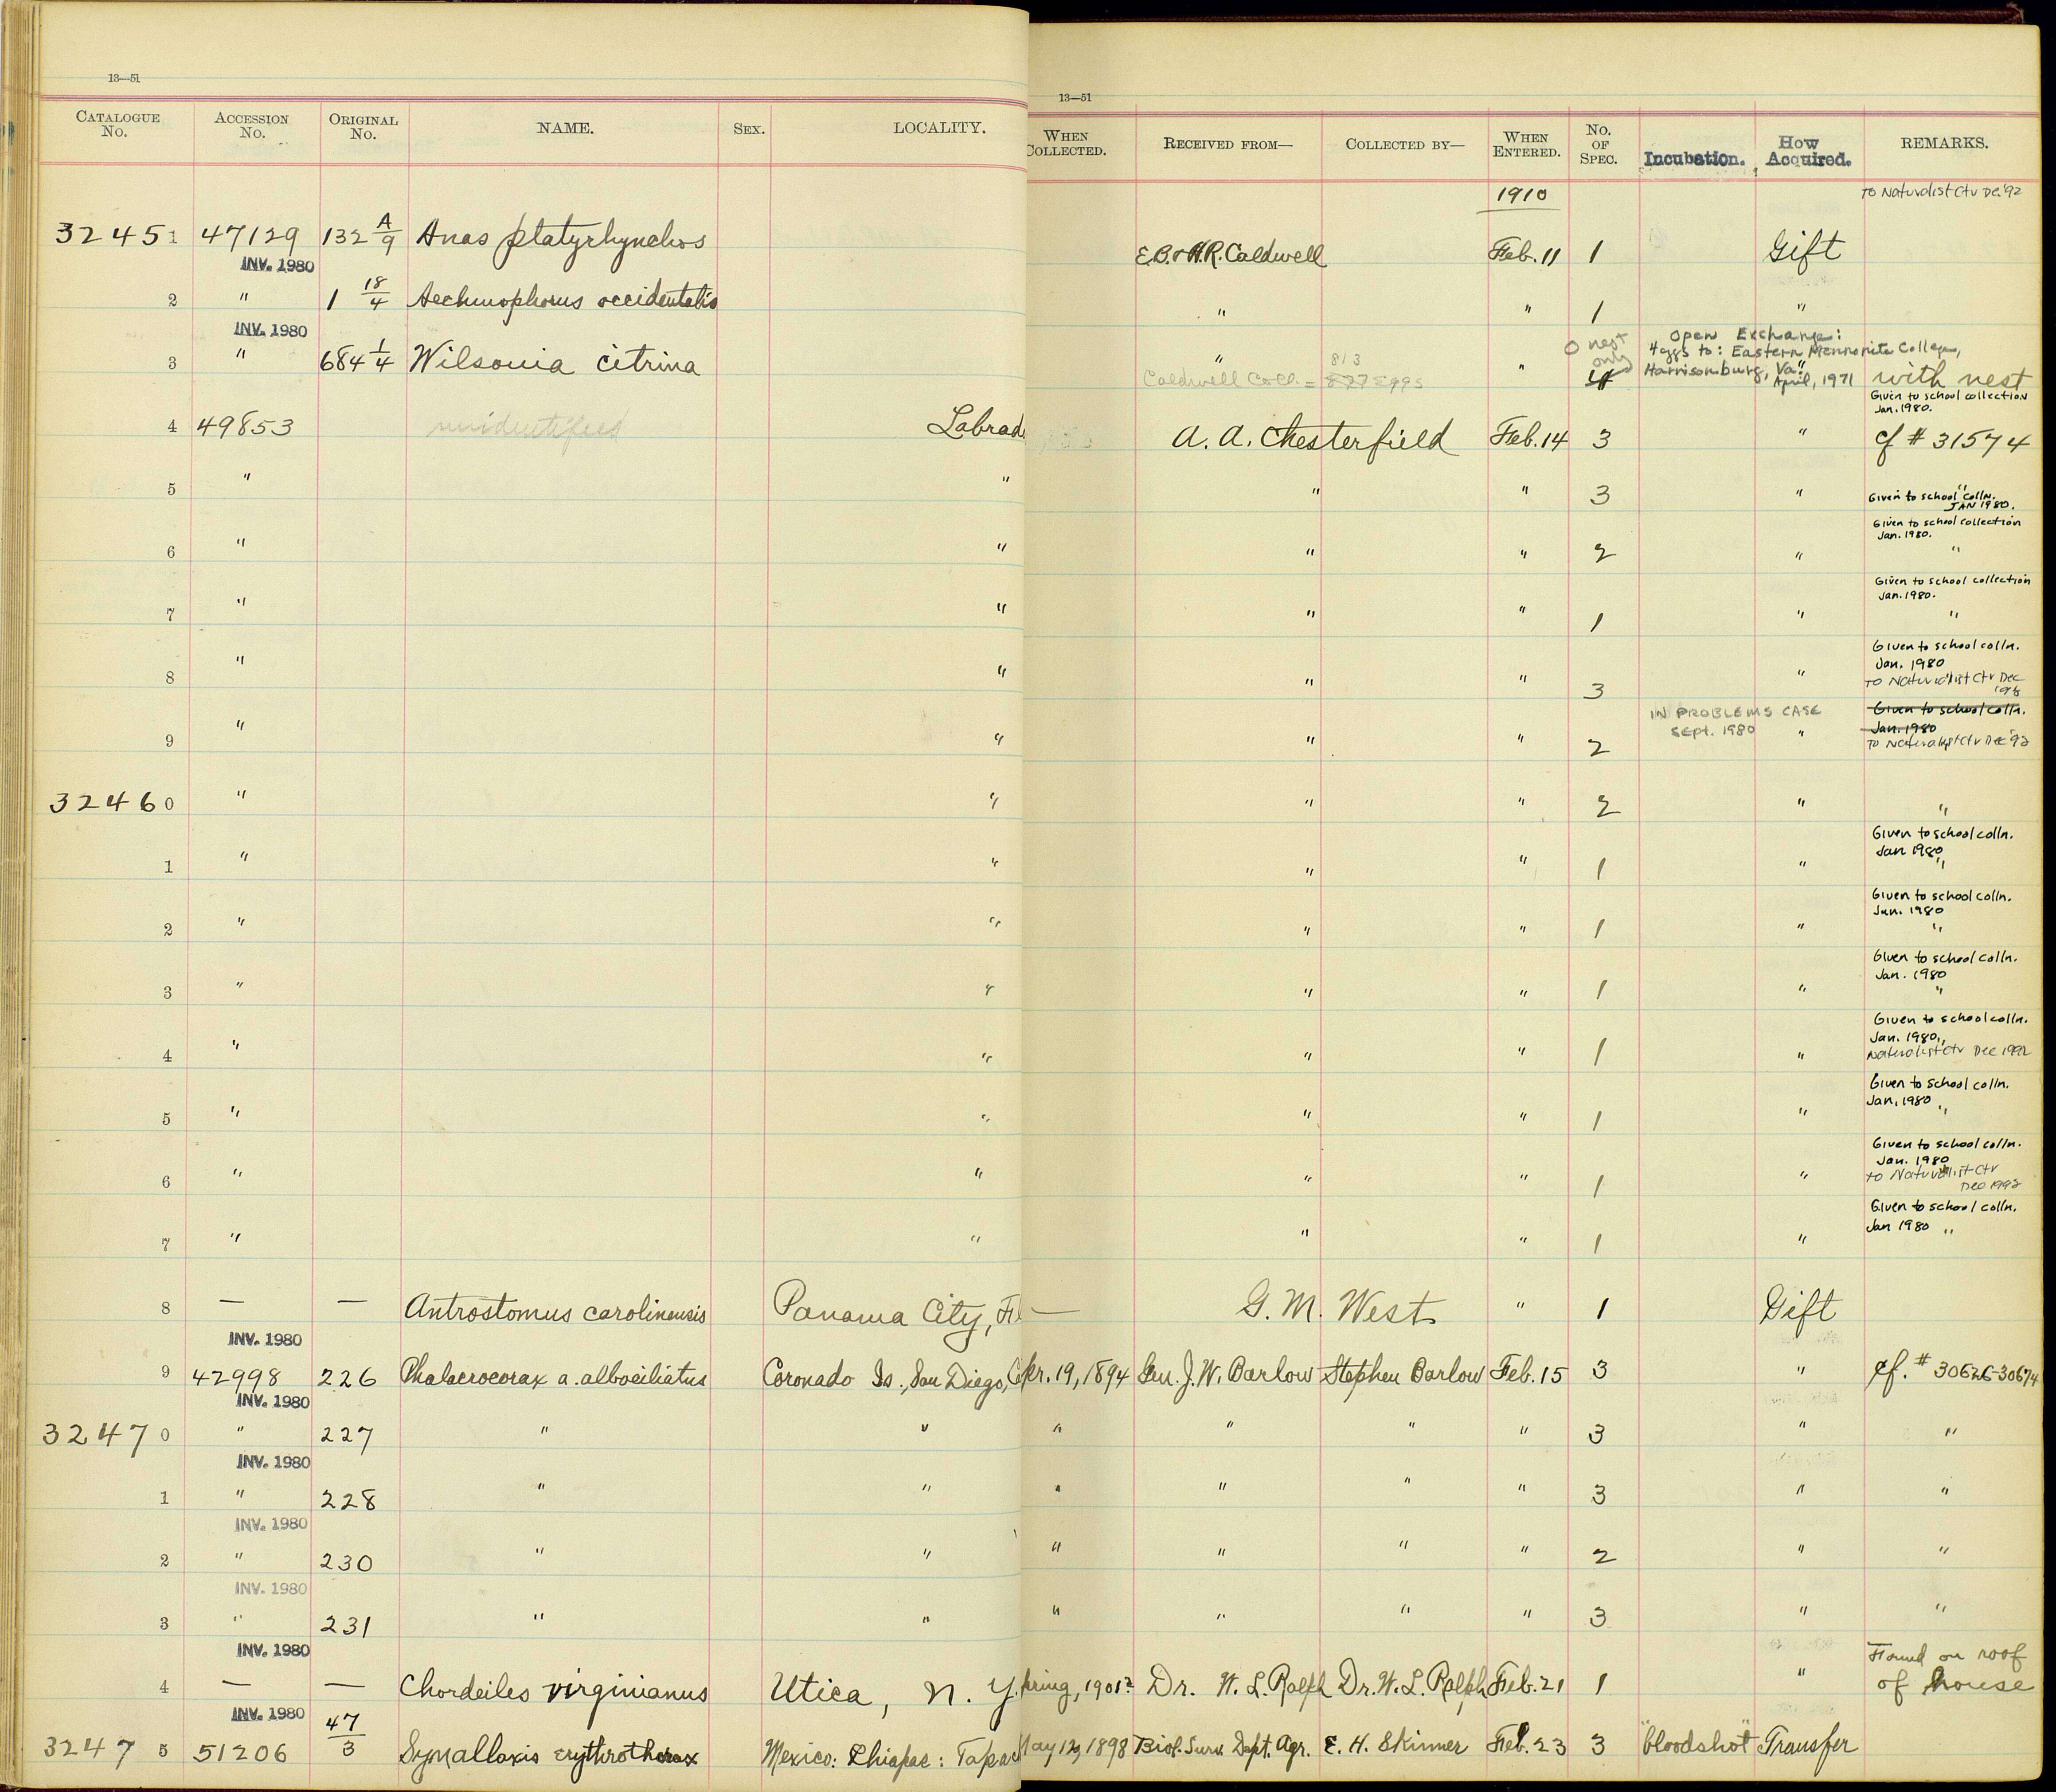 13—51
13—51
CATALOGUE No. ACCESSION No. ORIGINAL No. NAME. SEX. LOCALITY. WHEN COLLECTED. RECEIVED FROM— COLLECTED BY— WHEN ENTERED. No. OF SPEC. Incubation. How Acquired. REMARKS.
1910 TO Naturalist Ctr Dec. '92
32451 47129 132 A/9 Anas platyrhynchos E.B. & H.R. Caldwell Feb. 11 1 Gift
INV. 1980
2 " 1 18/4 Aechmophorus occidentalis " " 1 "
INV. 1980
O nest only Open Exchange:
4 eggs to: Eastern Mennonite College,
Harrisonburg, Va.
April, 1971
3 " 684 1/4 Wilsonia citrina " " 4 " with nest
813
Caldwell Coll. = 877 eggs
Given to school collection
Jan. 1980.
4 49853 unidentified Labrad A. A. Chesterfield Feb. 14 3 " cf # 31574
5 " " " " 3 " "
Given to school colln.
JAN 1980.
Given to school collection
Jan. 1980.
6 " " " " 2 " "
Given to school collection
Jan. 1980.
7 " " " " 1 " "
Given to school colln.
Jan. 1980
8 " " " " 3 "
TO Naturalist Ctr Dec
IN PROBLEMS CASE
Sept. 1980
Given to school colln.
Jan. 1980
9 " " " " 2 "
TO Naturalist Ctr Dec '92
32460 " " " " 2 " "
Given to school colln.
Jan 1980
1 " " " " 1 " "
Given to school colln.
Jan. 1980
2 " " " " 1 " "
Given to school colln.
Jan. 1980
3 " " " " 1 " "
Given to school colln.
Jan. 1980
4 " " " " 1 " "
Naturalist Ctr Dec 1992
Given to school colln.
Jan, 1980
5 " " " " 1 " "
Given to school colln.
Jan. 1980
6 " " " " 1 " "
to Naturalist Ctr
Dec 1992
Given to school colln.
Jan 1980
7 " " " " 1 " "
8 — — Antrostomus carolinensis Panama City, Fl — G. M. West " 1 Gift
INV. 1980
9 42998 226 Phalacrocorax a. albociliatus Coronado Is., San Diego, C pr. 19, 1894 Gen. J. W. Barlow Stephen Barlow Feb. 15 3 " cf. # 30626-30674
INV. 1980
32470 " 227 " " " " " " 3 " "
INV. 1980
1 " 228 " " " " " " 3 " "
INV. 1980
2 " 230 " " " " " " 2 " "
INV. 1980
3 " 231 " " " " " " 3 " "
INV. 1980
4 — — Chordeiles virginianus Utica, N. Y. pring, 1901? Dr. W. L. Ralph Dr. W. L. Ralph Feb. 21 1 " Found on roof
of house
INV. 1980
32475 51206 47/3 Synallaxis erythrothorax Mexico: Chiapas: Tapac May 12, 1898 Biol. Surv. Dept. Agr. E. H. Skinner Feb. 23 3 "bloodshot" Transfer